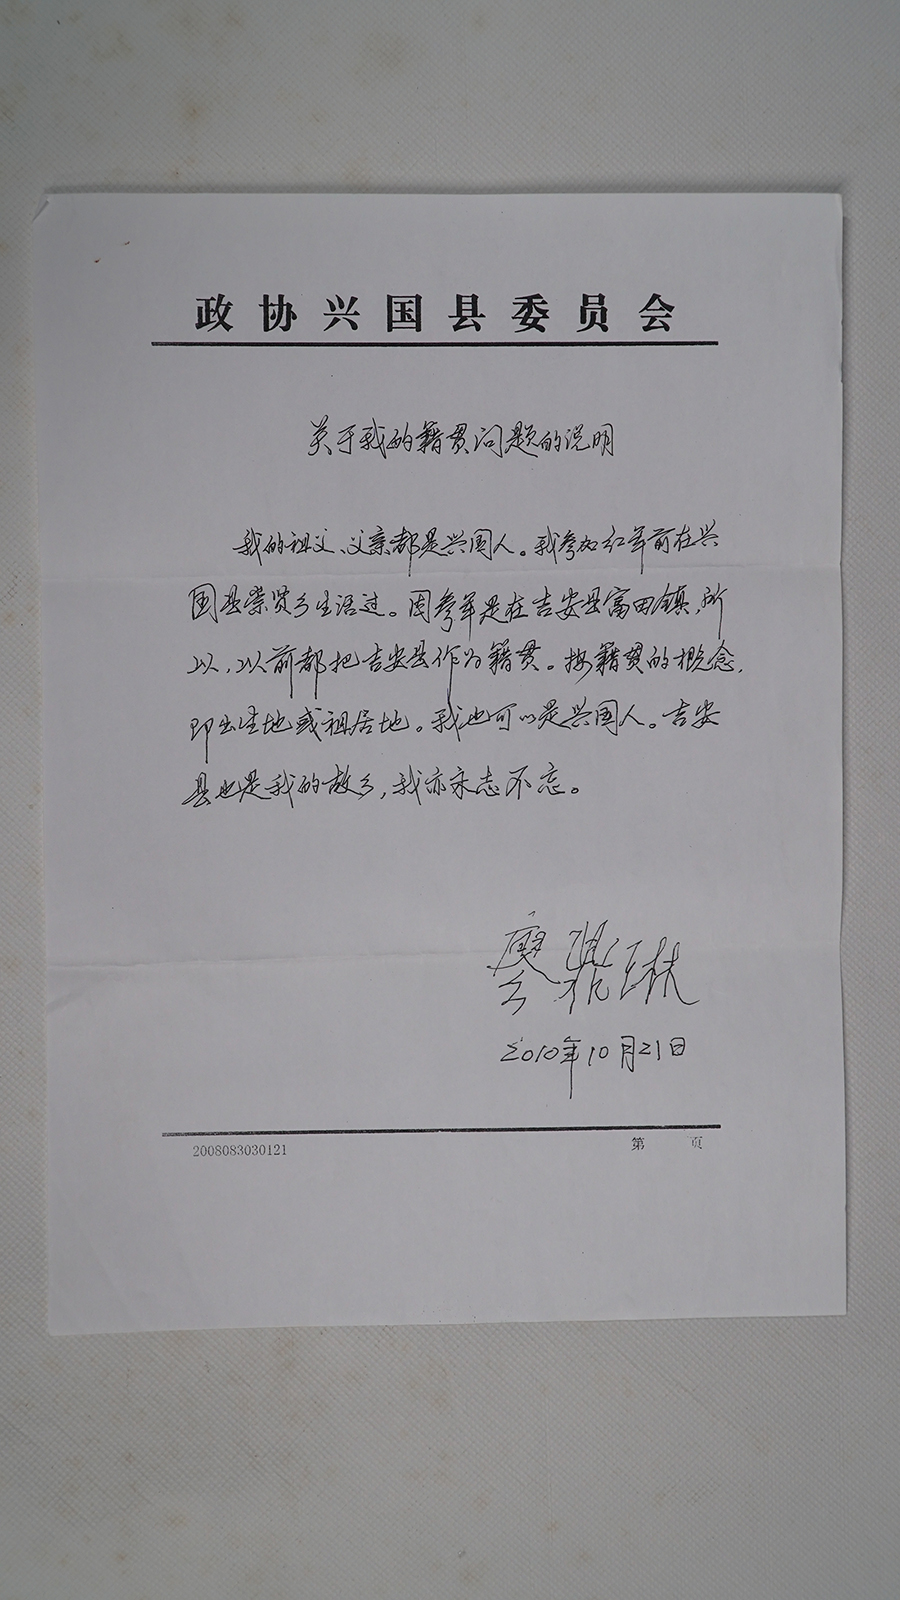 政协兴国县委员会
关于我的籍贯问题的说明
我的祖父、父亲都是兴国人。我参加红军前在兴
国县崇贤乡生活过。因参军是在吉安县富田镇,所
以,以前都把吉安县作为籍贯。按籍贯的概念,
即出生地或祖居地。我也可以是兴国人。吉安
县也是我的故乡,我亦永志不忘。
廖鼎琳
2010年10月21日
2008083030121 第 页